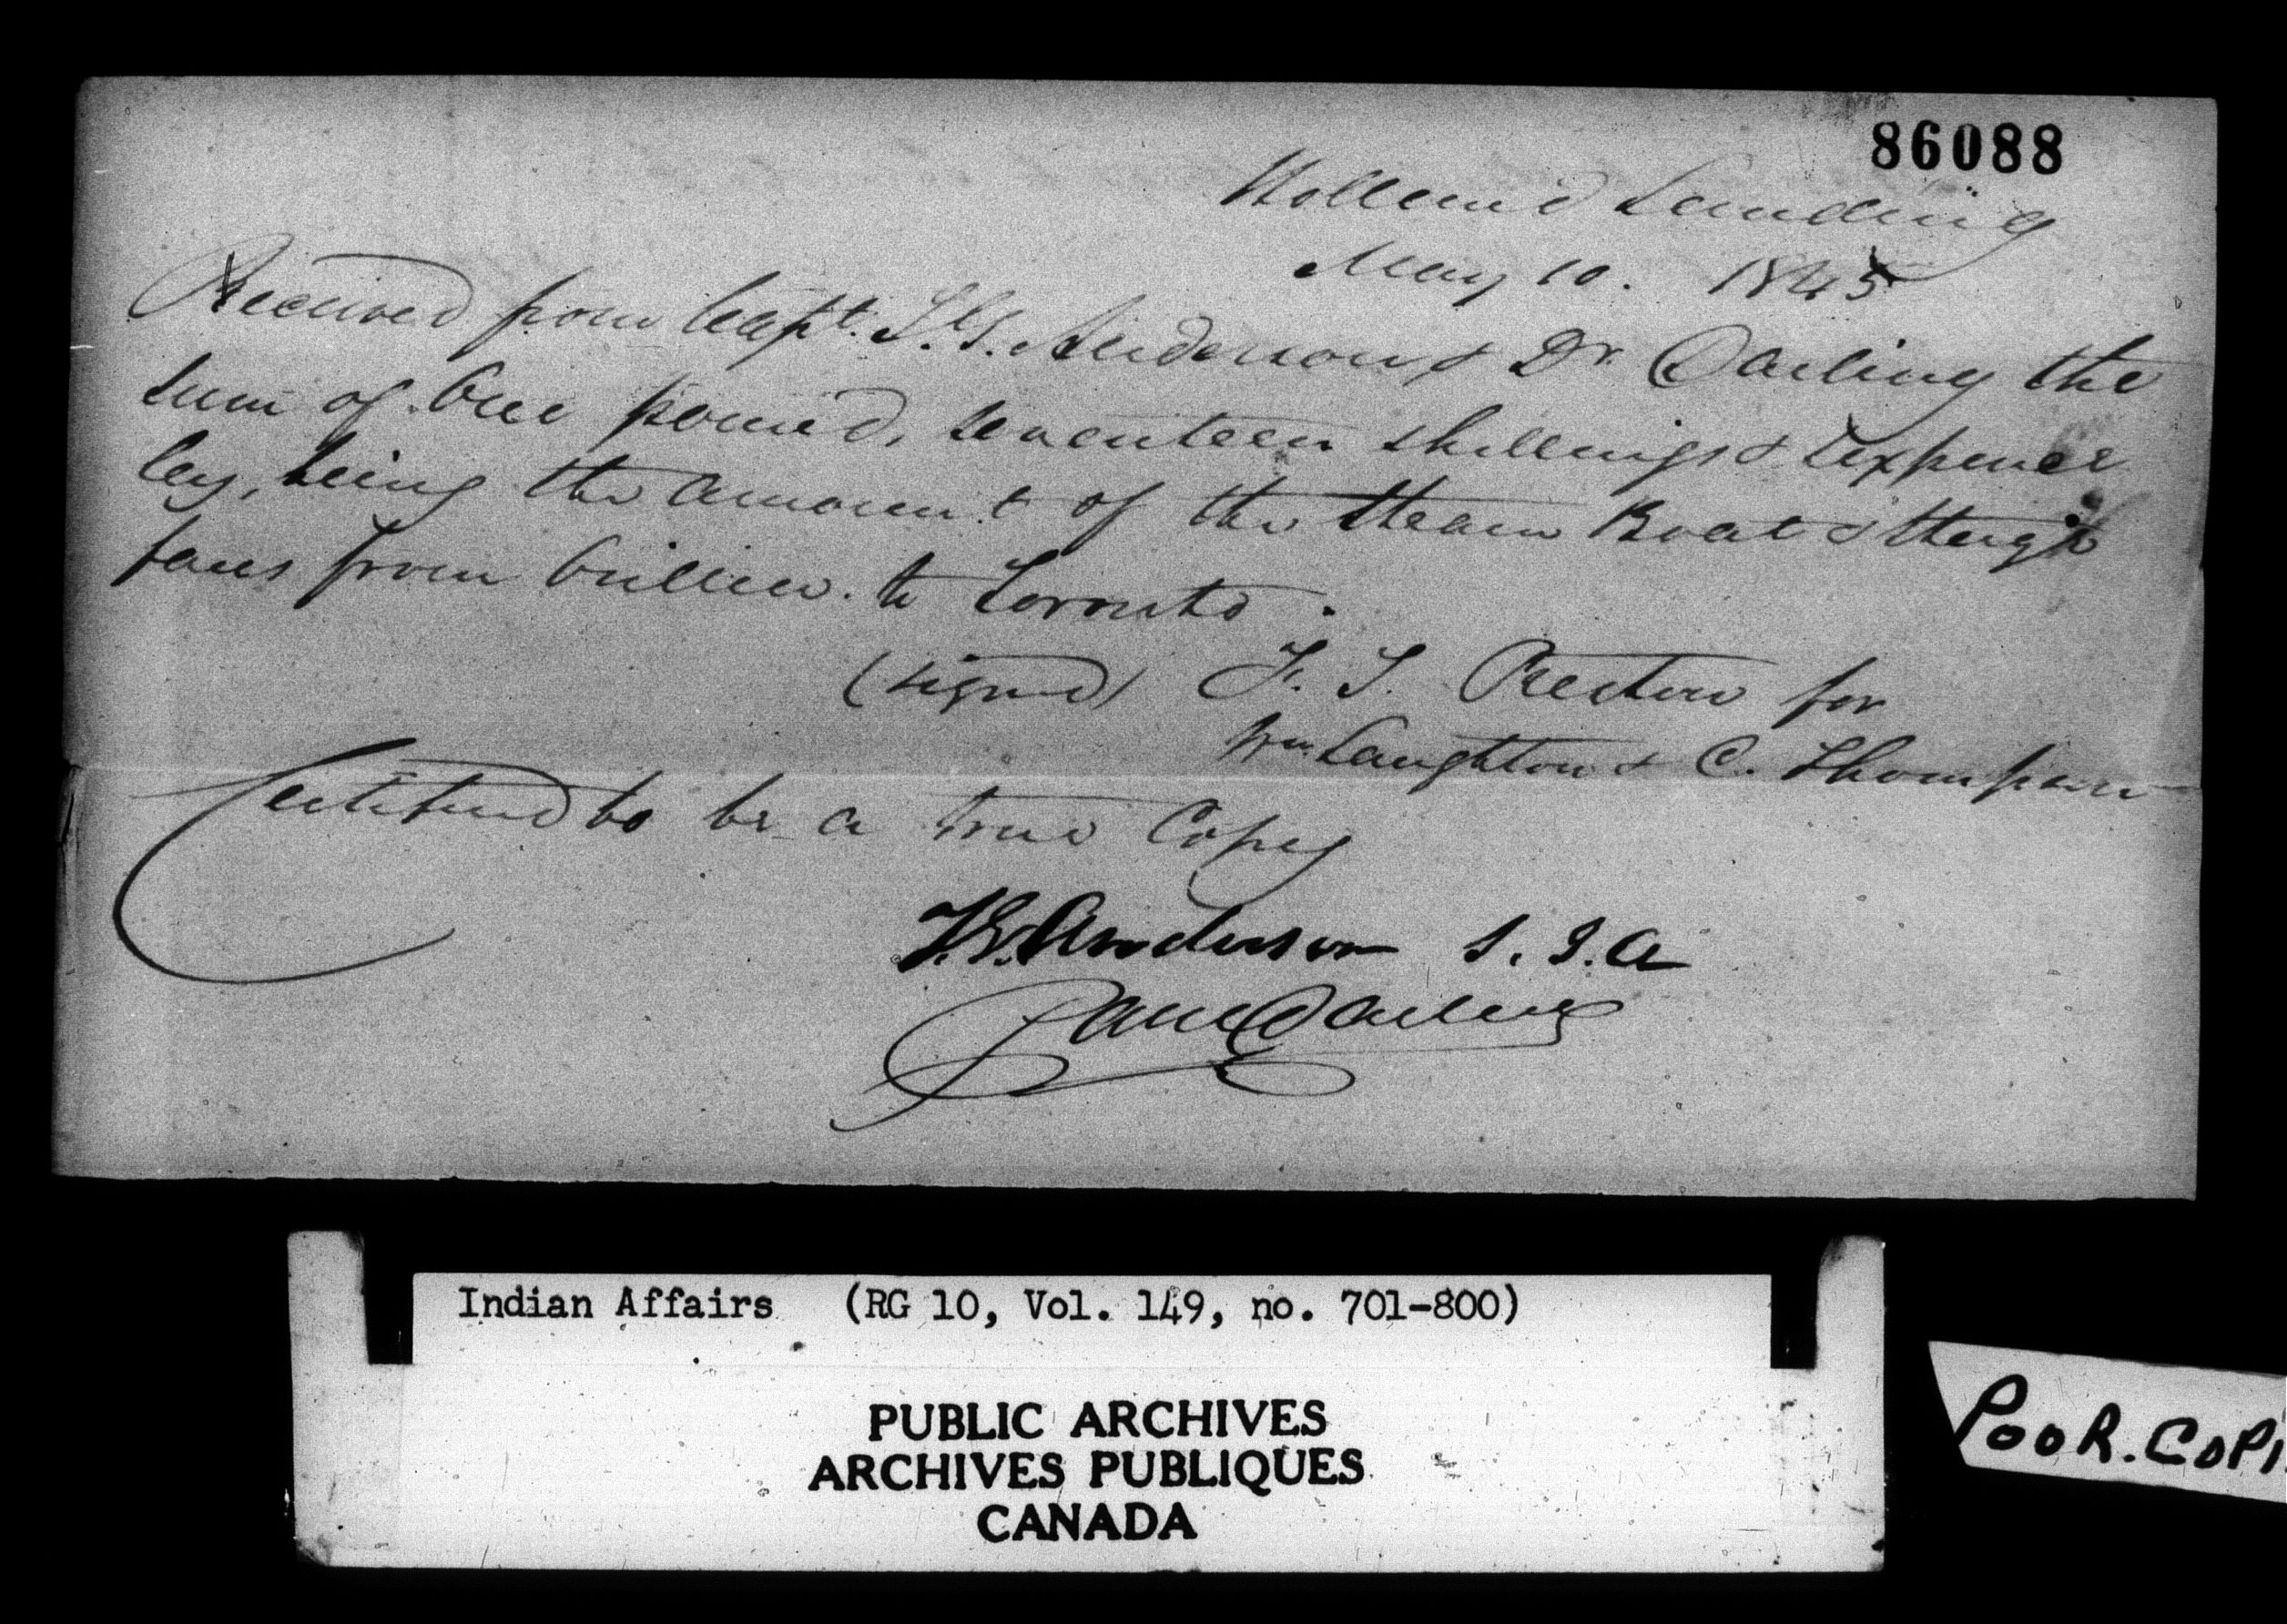 86088
Holland Landing
May 10. 1845
Received from Capt. T. G. Anderson & Dr. Darling the
sum of One pound, seventeen shillings & sixpence
Cy, being the amount of the Steam Boat & Stage
fares from Orillia to Toronto.
(signed) F. T. Preston for
Wm Laughton & C. Thompson
Certified to be a true Copy
T. G. Anderson S. I. A
Darling
Indian Affairs (RG 10, Vol. 149, no. 701-800)
PUBLIC ARCHIVES
ARCHIVES PUBLIQUES
CANADA
POOR. COPI